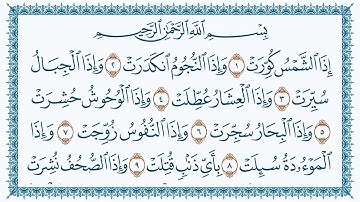 بِسْمِ ٱللَّهِ ٱلرَّحْمَٰنِ ٱلرَّحِيمِ
إِذَا ٱلشَّمْسُ كُوِّرَتْ ١ وَإِذَا ٱلنُّجُومُ ٱنكَدَرَتْ ٢ وَإِذَا ٱلْجِبَالُ
سُيِّرَتْ ٣ وَإِذَا ٱلْعِشَارُ عُطِّلَتْ ٤ وَإِذَا ٱلْوُحُوشُ حُشِرَتْ
٥ وَإِذَا ٱلْبِحَارُ سُجِّرَتْ ٦ وَإِذَا ٱلنُّفُوسُ زُوِّجَتْ ٧ وَإِذَا
ٱلْمَوْءُۥدَةُ سُئِلَتْ ٨ بِأَىِّ ذَنۢبٍ قُتِلَتْ ٩ وَإِذَا ٱلصُّحُفُ نُشِرَتْ